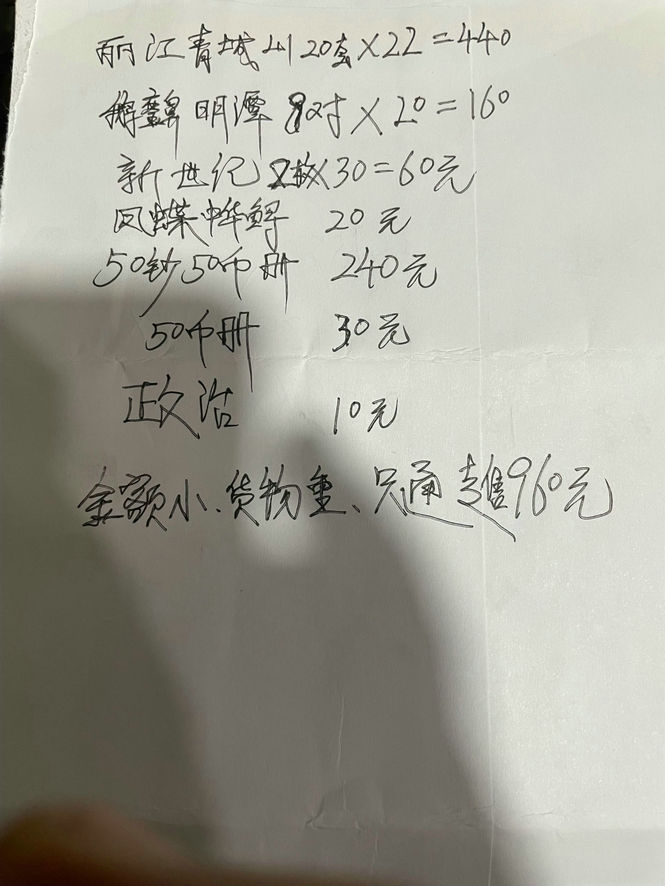 丽江青城山20套×22=440
明潭8对×20=160
新世纪2枚×30=60元
凤蝶中华鲟 20元
50钞50币册 240元
50币册 30元
政治 10元
金额小、货物重、只通走售960元